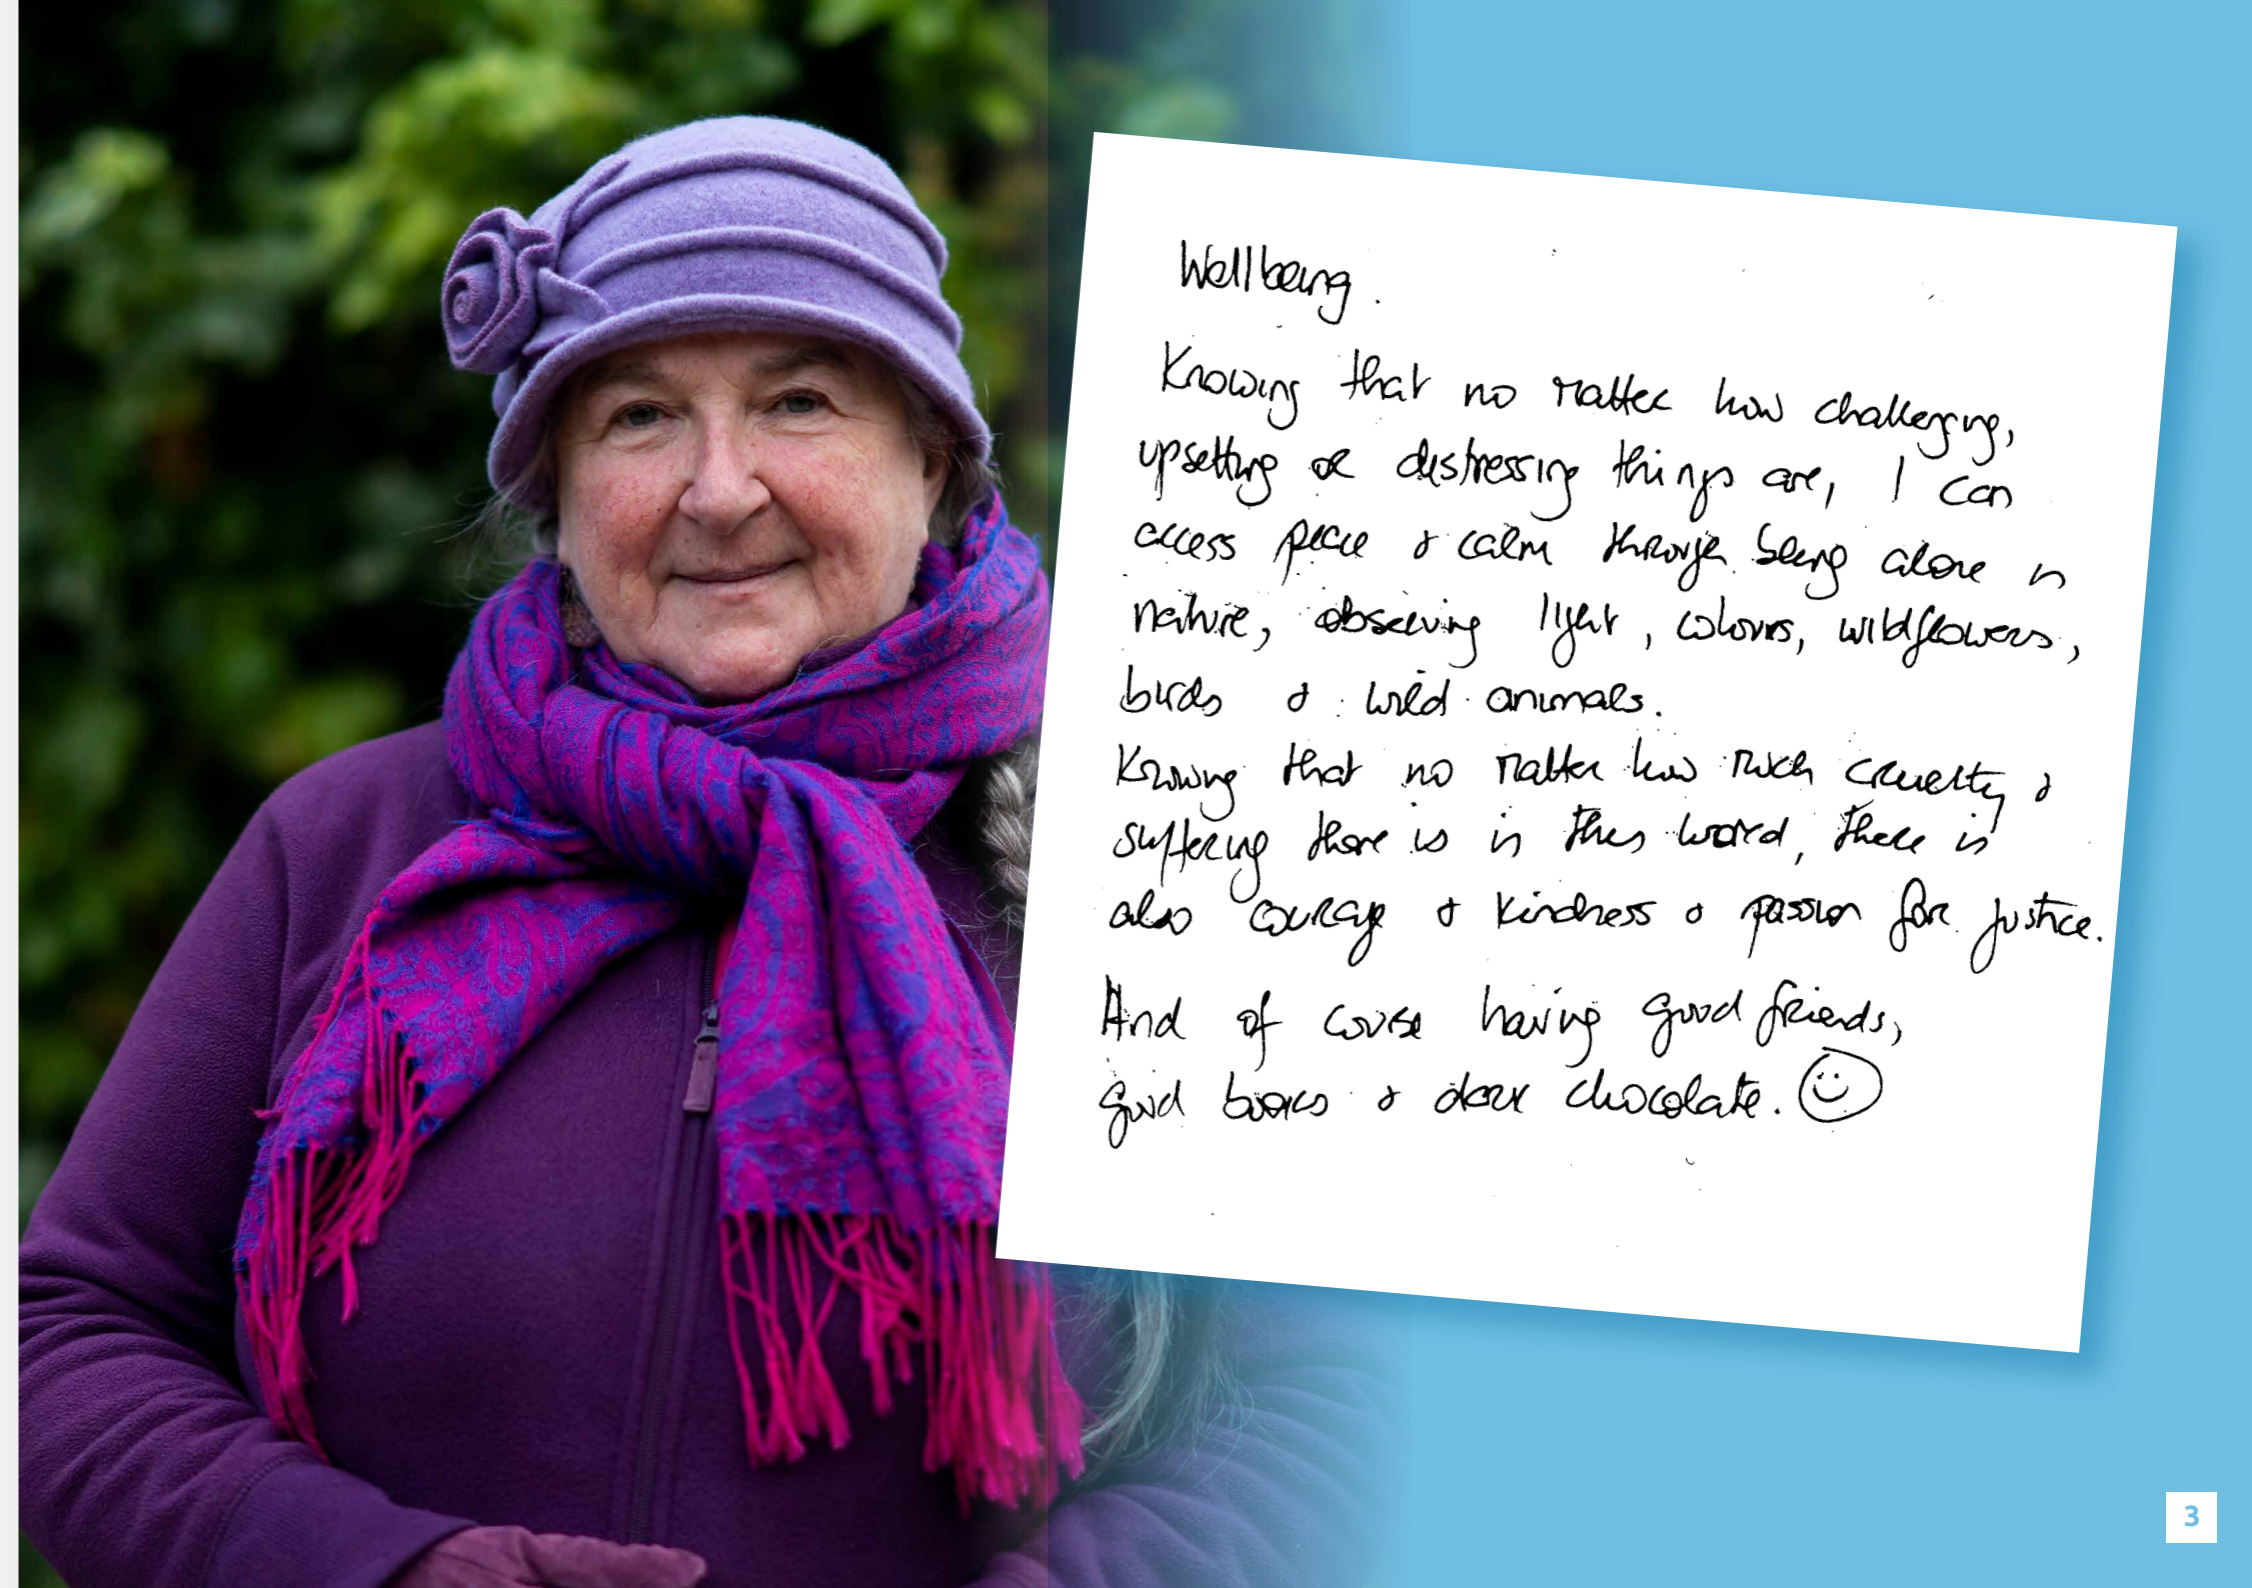 Wellbeing.
Knowing that no matter how challenging,
upsetting or distressing things are, I can
access peace & calm through being alone in
nature, observing light, colours, wildflowers,
birds & wild animals.
Knowing that no matter how much cruelty &
suffering there is in this world, there is
also courage & kindness & passion for justice.
And of course having good friends,
good books & dark chocolate.
3